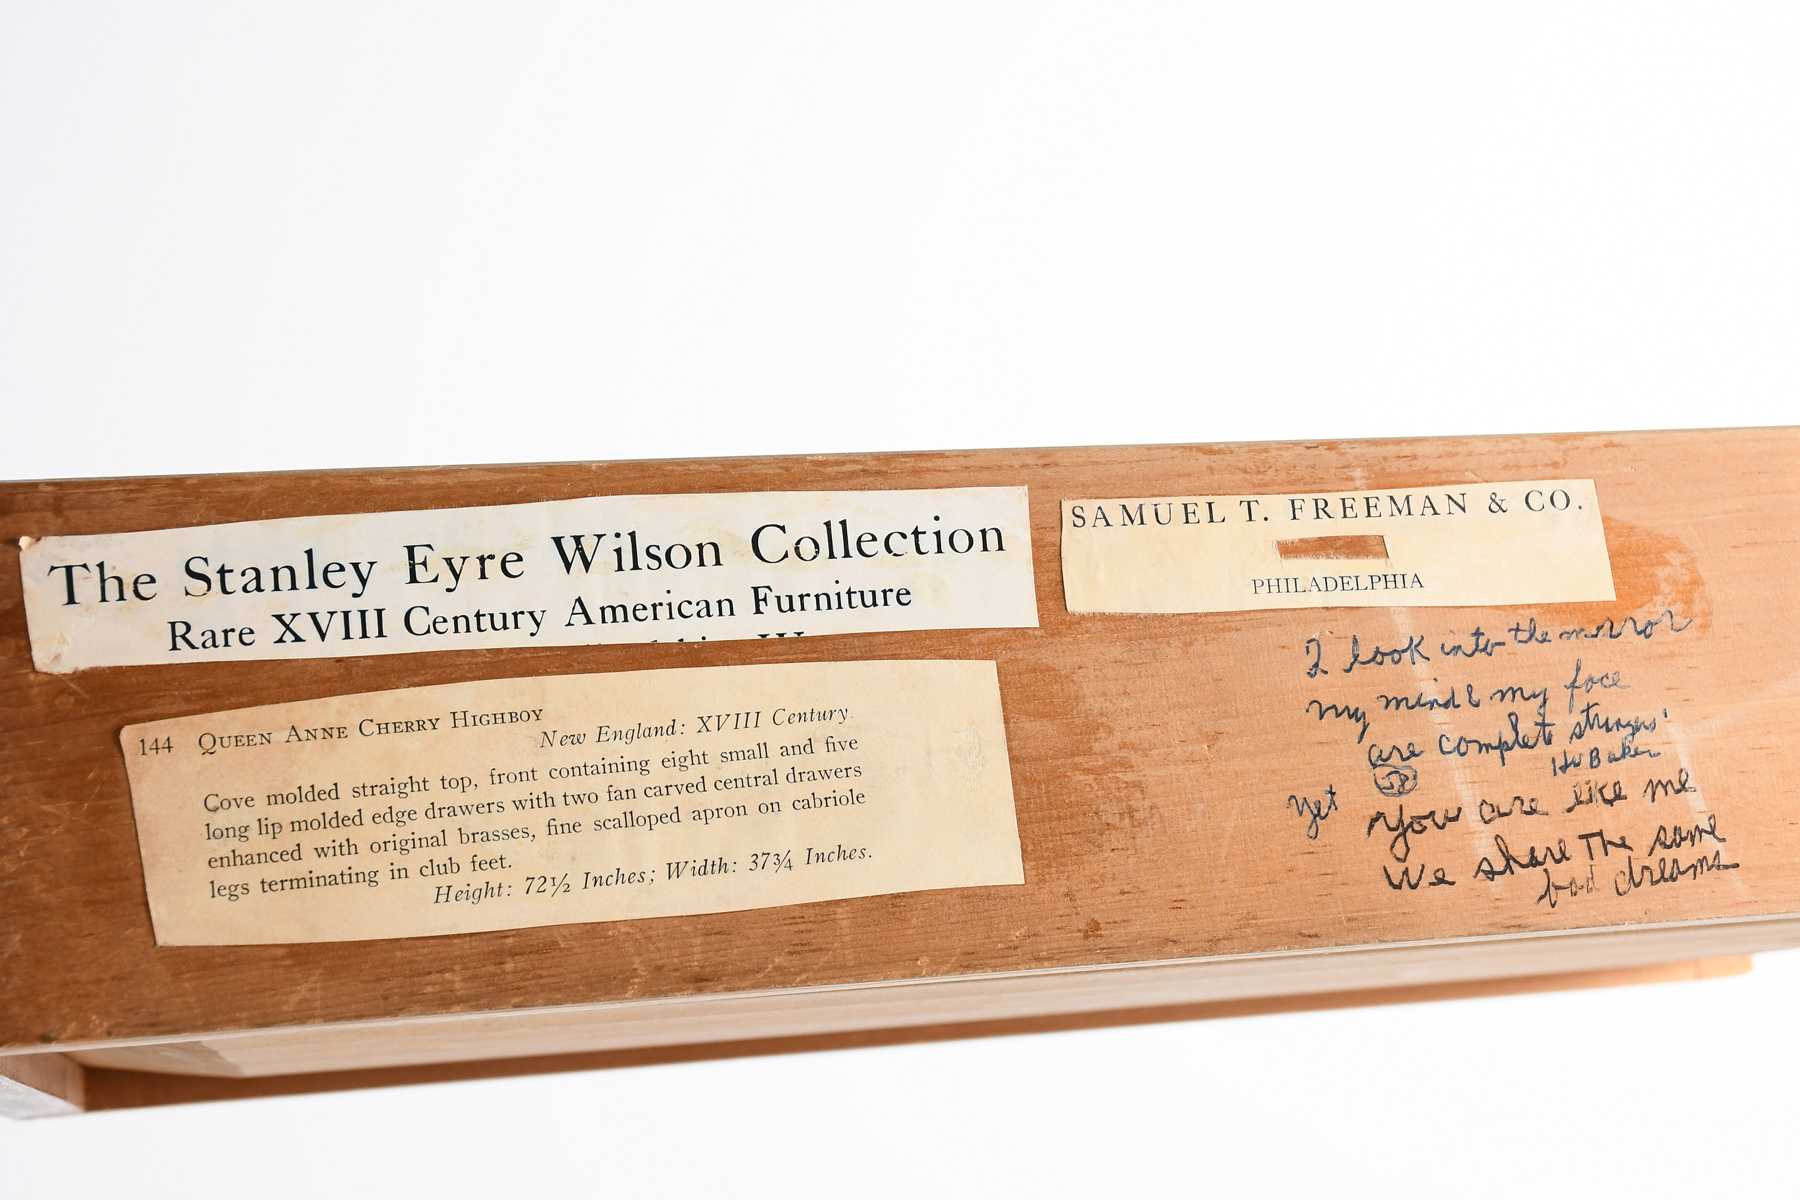 The Stanley Eyre Wilson Collection
Rare XVIII Century American Furniture
SAMUEL T. FREEMAN & CO.
PHILADELPHIA
144 QUEEN ANNE CHERRY HIGHBOY
New England: XVIII Century.
Cove molded straight top, front containing eight small and five
long lip molded edge drawers with two fan carved central drawers
enhanced with original brasses, fine scalloped apron on cabriole
legs terminating in club feet.
Height: 72½ Inches; Width: 37¾ Inches.
I look into the mirror
my mind & my face
are complete strangers'
Baker
yet you are like me
We share The same
bad dreams